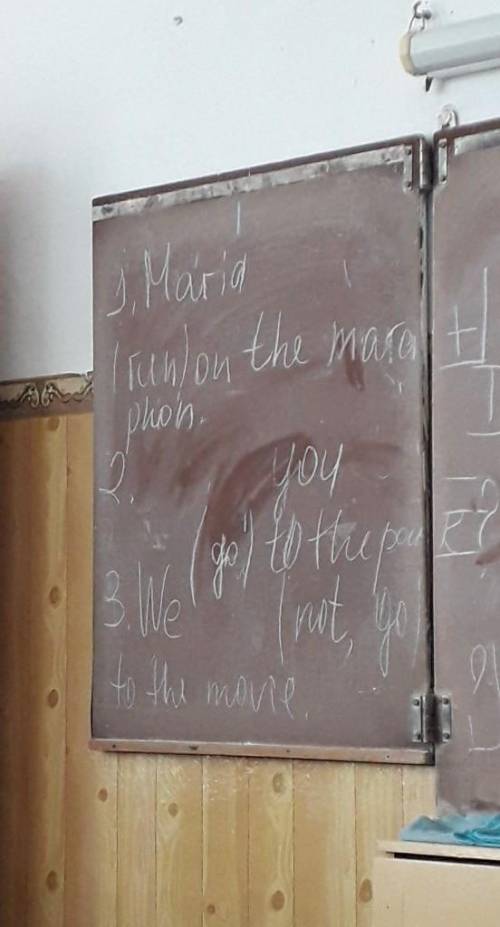 1. Maria
(run) on the mara
phon.
2. you
(go) to the
3. We (not, go)
to the movie.
+
I
?